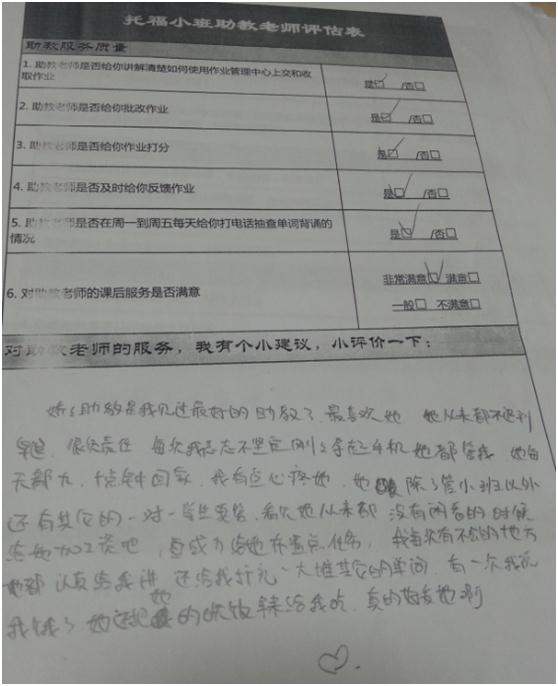 托福小班助教老师评估表
助教服务质量
1. 助教老师是否给你讲解清楚如何使用作业管理中心上交和收
取作业
是☑ /否□
2. 助教老师是否给你批改作业
是☑ /否□
3. 助教老师是否给你作业打分
是☑ /否□
4. 助教老师是否及时给你反馈作业
是☑ /否□
5. 助教老师是否在周一到周五每天给你打电话抽查单词背诵的
情况
是☑ /否□
6. 对助教老师的课后服务是否满意
非常满意☑ 满意□
一般□ 不满意□
对助教老师的服务，我有个小建议，小评价一下：
助教是我见过最好的助教了 最喜欢她 她从来都不迟到
早退 很负责任 每次我意志不坚定刚拿起手机她都管我 她每
天都九、十点钟回家 我有点心疼她 她除了管小班以外
还有其它的一对一学生要管 她从来都没有闲着的时候
给她加工资吧 我每次有不会的地方
她都认真给我讲 还给我打印一大堆其它的单词 有一次我说
我饿了 她还把她的晚饭拿来给我吃 真的好爱她啊